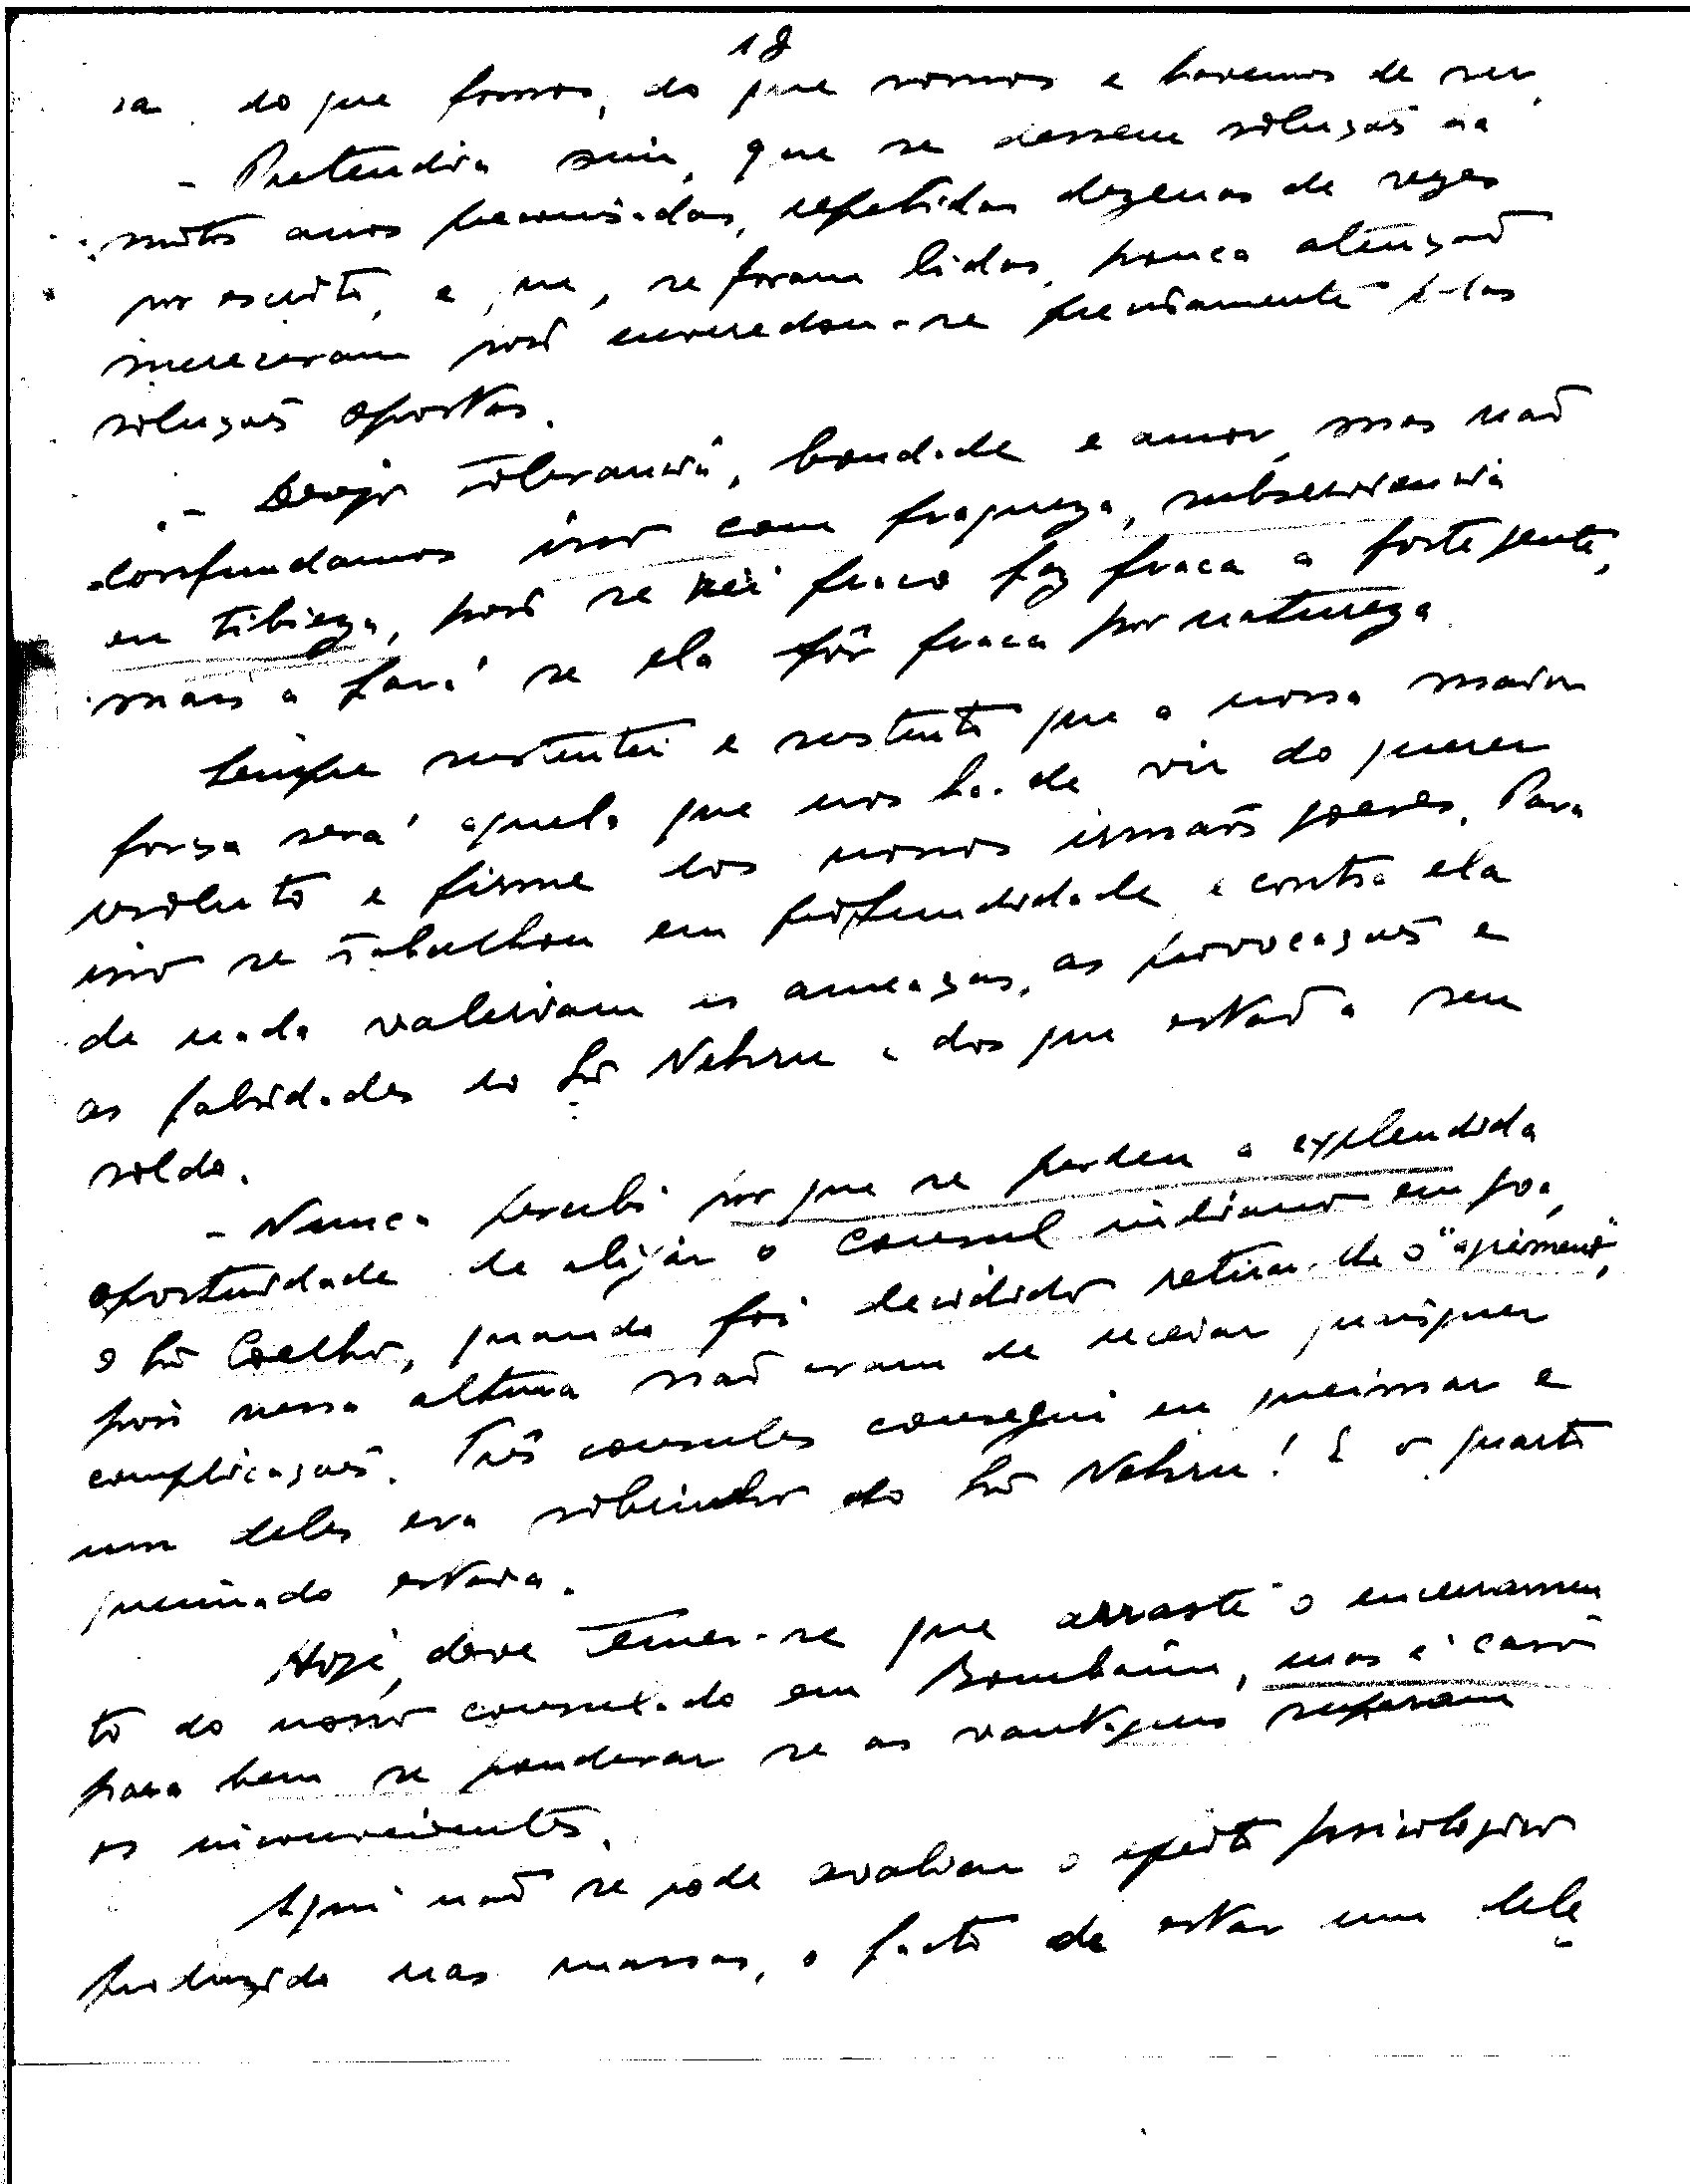 18
sa do que fomos, do que somos e havemos de ser.
- Pretendia sim, que se dessem soluções há
muitos anos preconisadas, repetidas dezenas de vezes
por escrito, e que, se foram lidas, pouca atenção
mereceram pois enveredou-se precisamente pelas
soluções opostas.
- Desejo tolerancia, bondade e amor, mas não
confundamos isso com fraqueza, subserviencia
ou tibieza, pois se rei fraco faz fraca a forte gente,
mais a fará se ela fôr fraca por natureza.
Sempre sustentei e sustento que a nossa maior
força será aquela que nos há-de vir do querer
resoluto e firme dos nossos irmãos goeses. Para
isso se trabalhou em profundidade e contra ela
de nada valeriam as ameaças, as provocações e
as falsidades do Sr Nehru e dos que estão a seu
soldo.
- Nunca percebi por que se perdeu a explendida
oportunidade de alijar o consul indiano em Goa,
o Sr Coelho, quando foi decidido retirar-lhe o "agrément",
pois nessa altura não eram de recear quaisquer
complicações. Três consules consegui eu queimar e
um deles era sobrinho do Sr Nehru! E o quarto
queimado estava.
Hoje, deve temer-se que arraste o encerramen
to do nosso consulado em Bombaim, mas é caso
para bem se ponderar se as vantagens superam
os inconvenientes.
Aqui não se pode avaliar o efeito psicologico
produzido nas massas, o facto de estar um dele